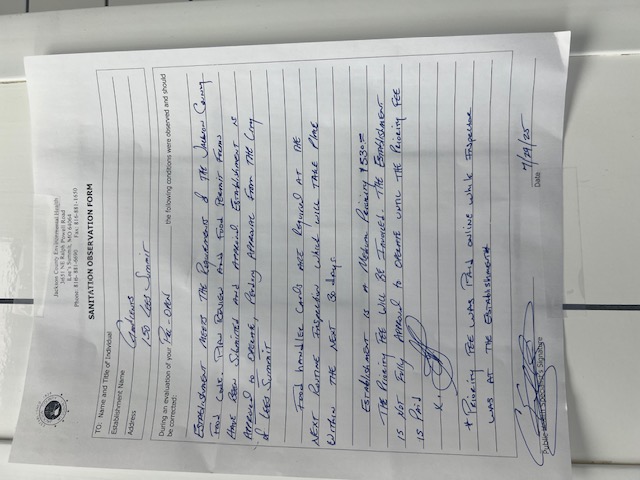 Jackson County Environmental Health
3651 NE Ralph Powell Road
Lee's Summit, MO 64064
Phone: 816-881-6650 Fax: 816-881-1650
SANITATION OBSERVATION FORM
TO: Name and Title of Individual
Establishment Name
Address 150 Lees Summit
During an evaluation of your Pre Open the following conditions were observed and should
be corrected:
Establishment meets the Requirements of the Jackson County
Food Code. Plan Review and Food Permit Forms
Have Been Submitted and Approved. Establishment is
Approved to Operate, Pending Approval From the City
of Lees Summit
Food Handler Cards are Required at the
Next Routine Inspection which will take Place
Within the Next 30 days
Establishment is a Medium Priority $530
The Priority Fee will be Invoiced. The Establishment
is Not Fully Approved to Operate until the Priority Fee
is Paid
x.
* Priority Fee was Paid online while Inspector
was at the Establishment
Signature
7/29/25
Date